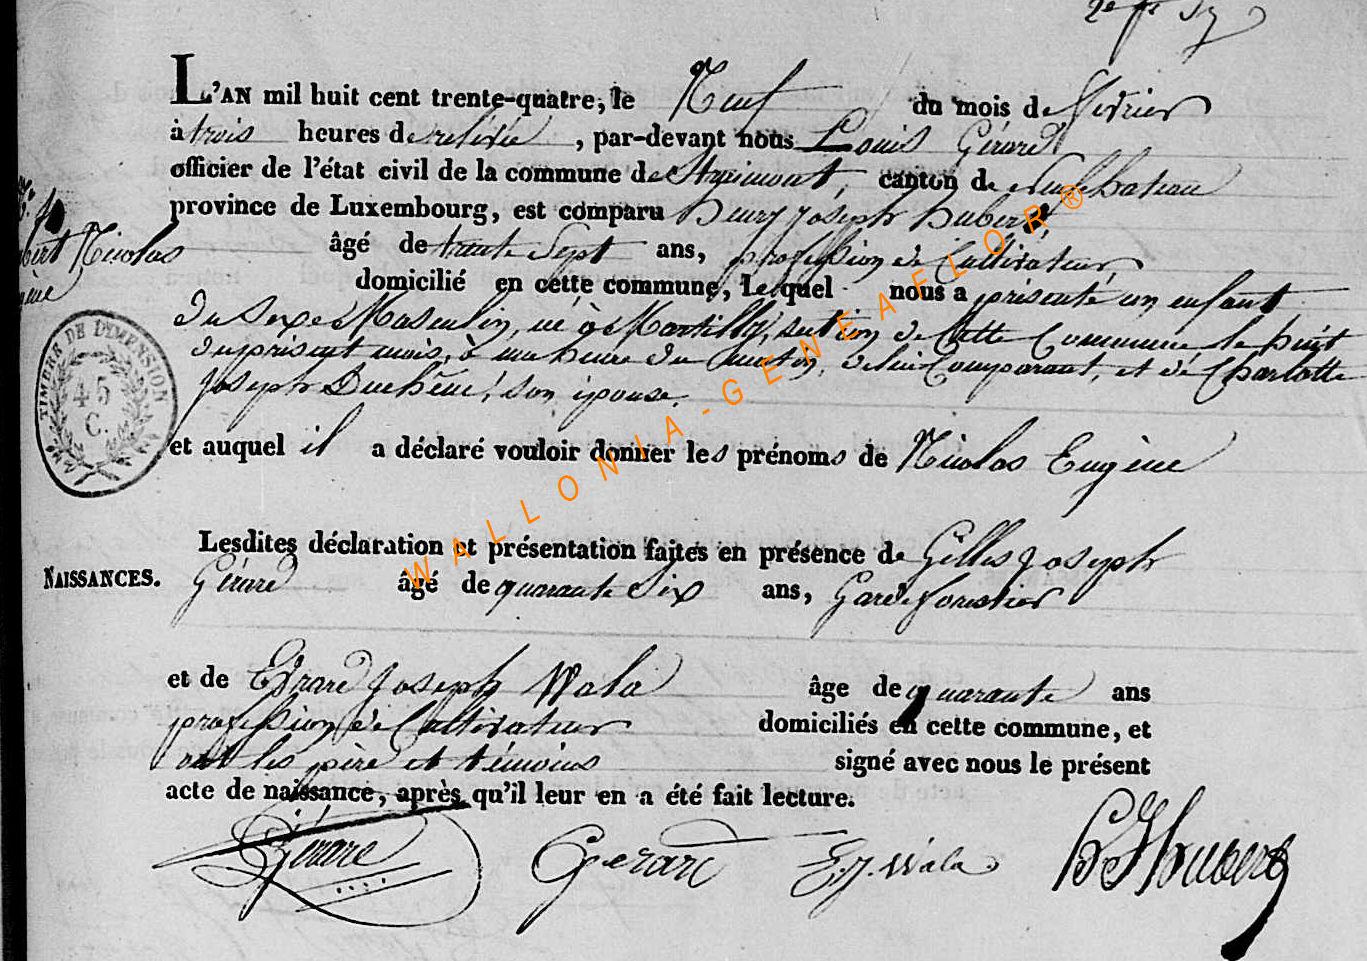 L'AN mil huit cent trente-quatre, le Neuf du mois de fevrier
à trois heures de relevée, par-devant nous Louis Gérard
officier de l'état civil de la commune de Straimont, canton de neufchateau
province de Luxembourg, est comparu henry joseph hubert
âgé de trente Sept ans, profession de Cultivateur,
domicilié en cette commune, Lequel nous a présenté un enfant
du sexe Masculin, né à Martilly, section de Cette Commune le huit
du présent mois, à une heure du matin, de lui Comparant, et de Charlotte
joseph Duchêne, son épouse.
et auquel il a déclaré vouloir donner les prénoms de Nicolas Eugène
Lesdites déclaration et présentation faites en présence de Gilles joseph
Gérard âgé de quarante Six ans, Garde forestier
et de Erard joseph Wala âge de quarante ans
profession de Cultivateur domiciliés en cette commune, et
ont les père et témoins signé avec nous le présent
acte de naissance, après qu'il leur en a été fait lecture.
Gérard Gerard E.J. Wala h J hubert
Nicolas
NAISSANCES.
TIMBRE DE DIMENSION
45
C.
WALLONIA-GENEAFLOR®